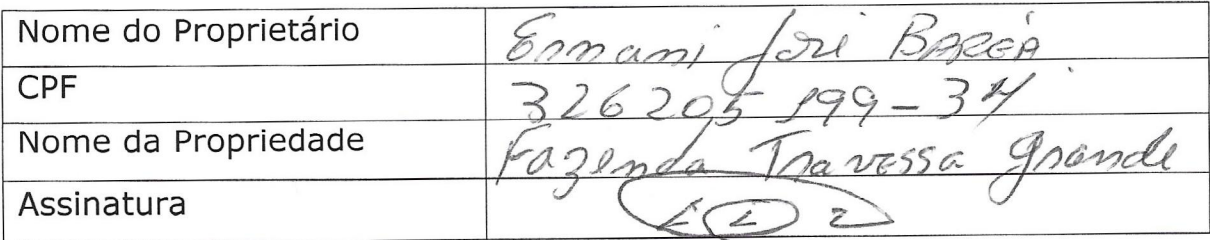 Nome do Proprietário Ernani José BAREA
CPF 326205199-34
Nome da Propriedade Fazenda Travessa Grande
Assinatura